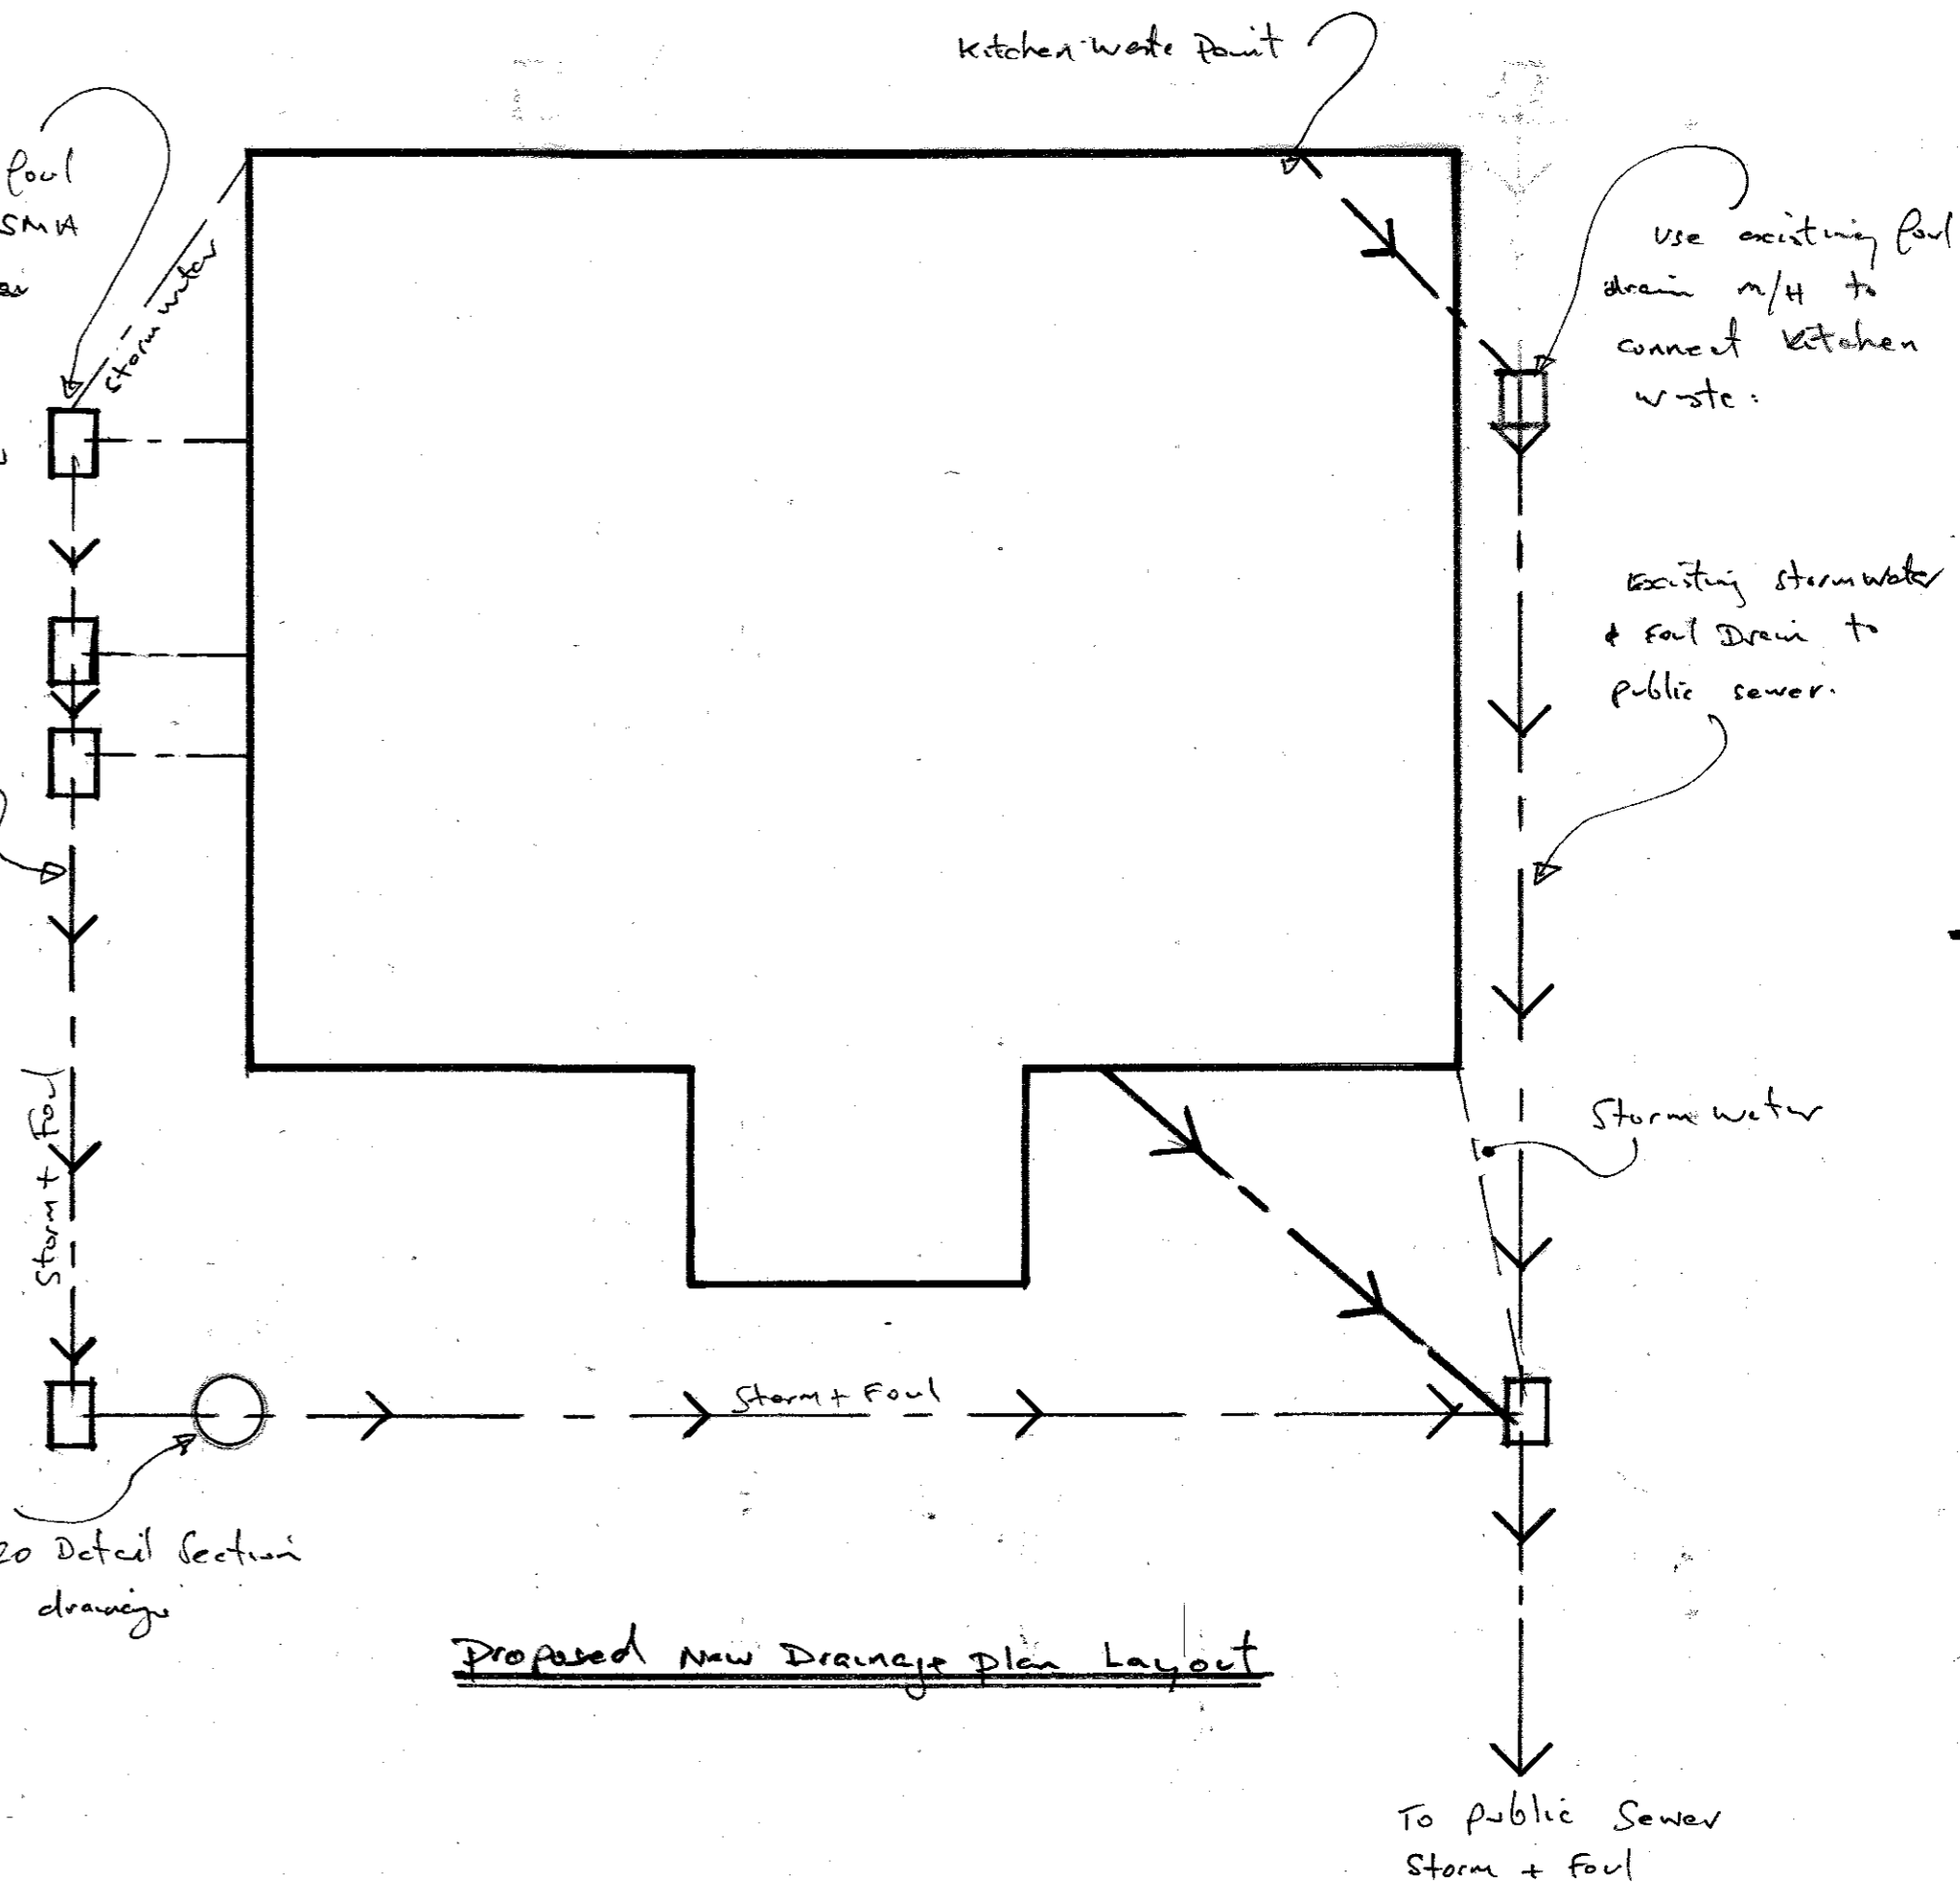 Kitchen waste point
foul
SMH
Storm water
Use existing foul
drain M/H to
connect kitchen
waste.
Existing stormwater
& Foul Drain to
public sewer.
Storm water
Storm + Foul
Storm + Foul
20 Detail Section
drainage
Proposed New Drainage plan Layout
To public Sewer
Storm + Foul